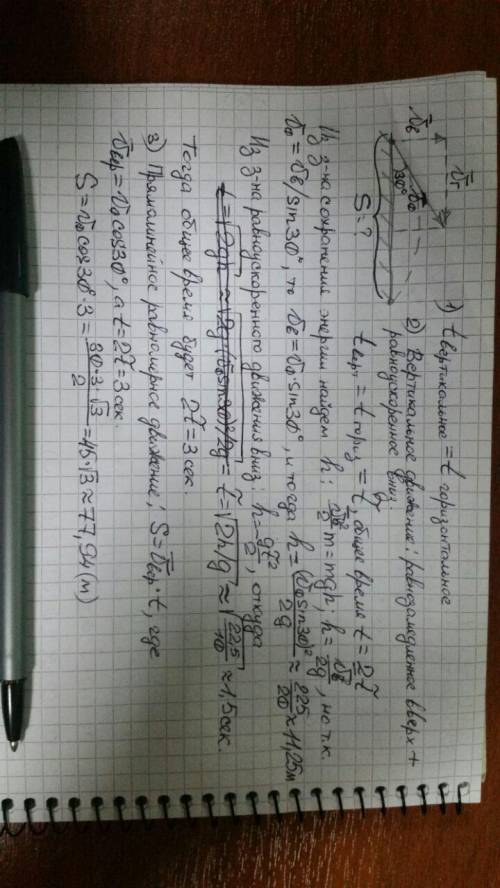 v̄г
v̄в
v̄₀
30°
S = ?
1) t вертикальное = t горизонтальное
2) Вертикальное движение: равнозамедленное вверх +
равноускоренное вниз
t верт = t гориз = t̃, общее время t = 2t̃
Из з-на сохранения энергии найдем h: v̄в²/2 m = mgh; h = v̄в²/2g, но т.к.
v̄₀ = v̄в/sin30°, то v̄в = v̄₀ sin30°, и тогда h = (v̄₀ sin30)²/2g ≈ 225/20 ≈ 11,25 м
Из з-на равноускоренного движения вниз: h = gt̃²/2, откуда
t̃ = √2h/g ≈ √22,5/10 ≈ 1,5 сек.
Тогда общее время будет 2t̃ = 3 сек.
3) Прямолинейное равномерное движение; S = v̄гор · t, где
v̄гор = v̄₀ cos30°, а t = 2t̃ = 3 сек.
S = v̄₀ cos30° · 3 = 30·3·√3/2 = 45·√3 ≈ 77,94 (м)